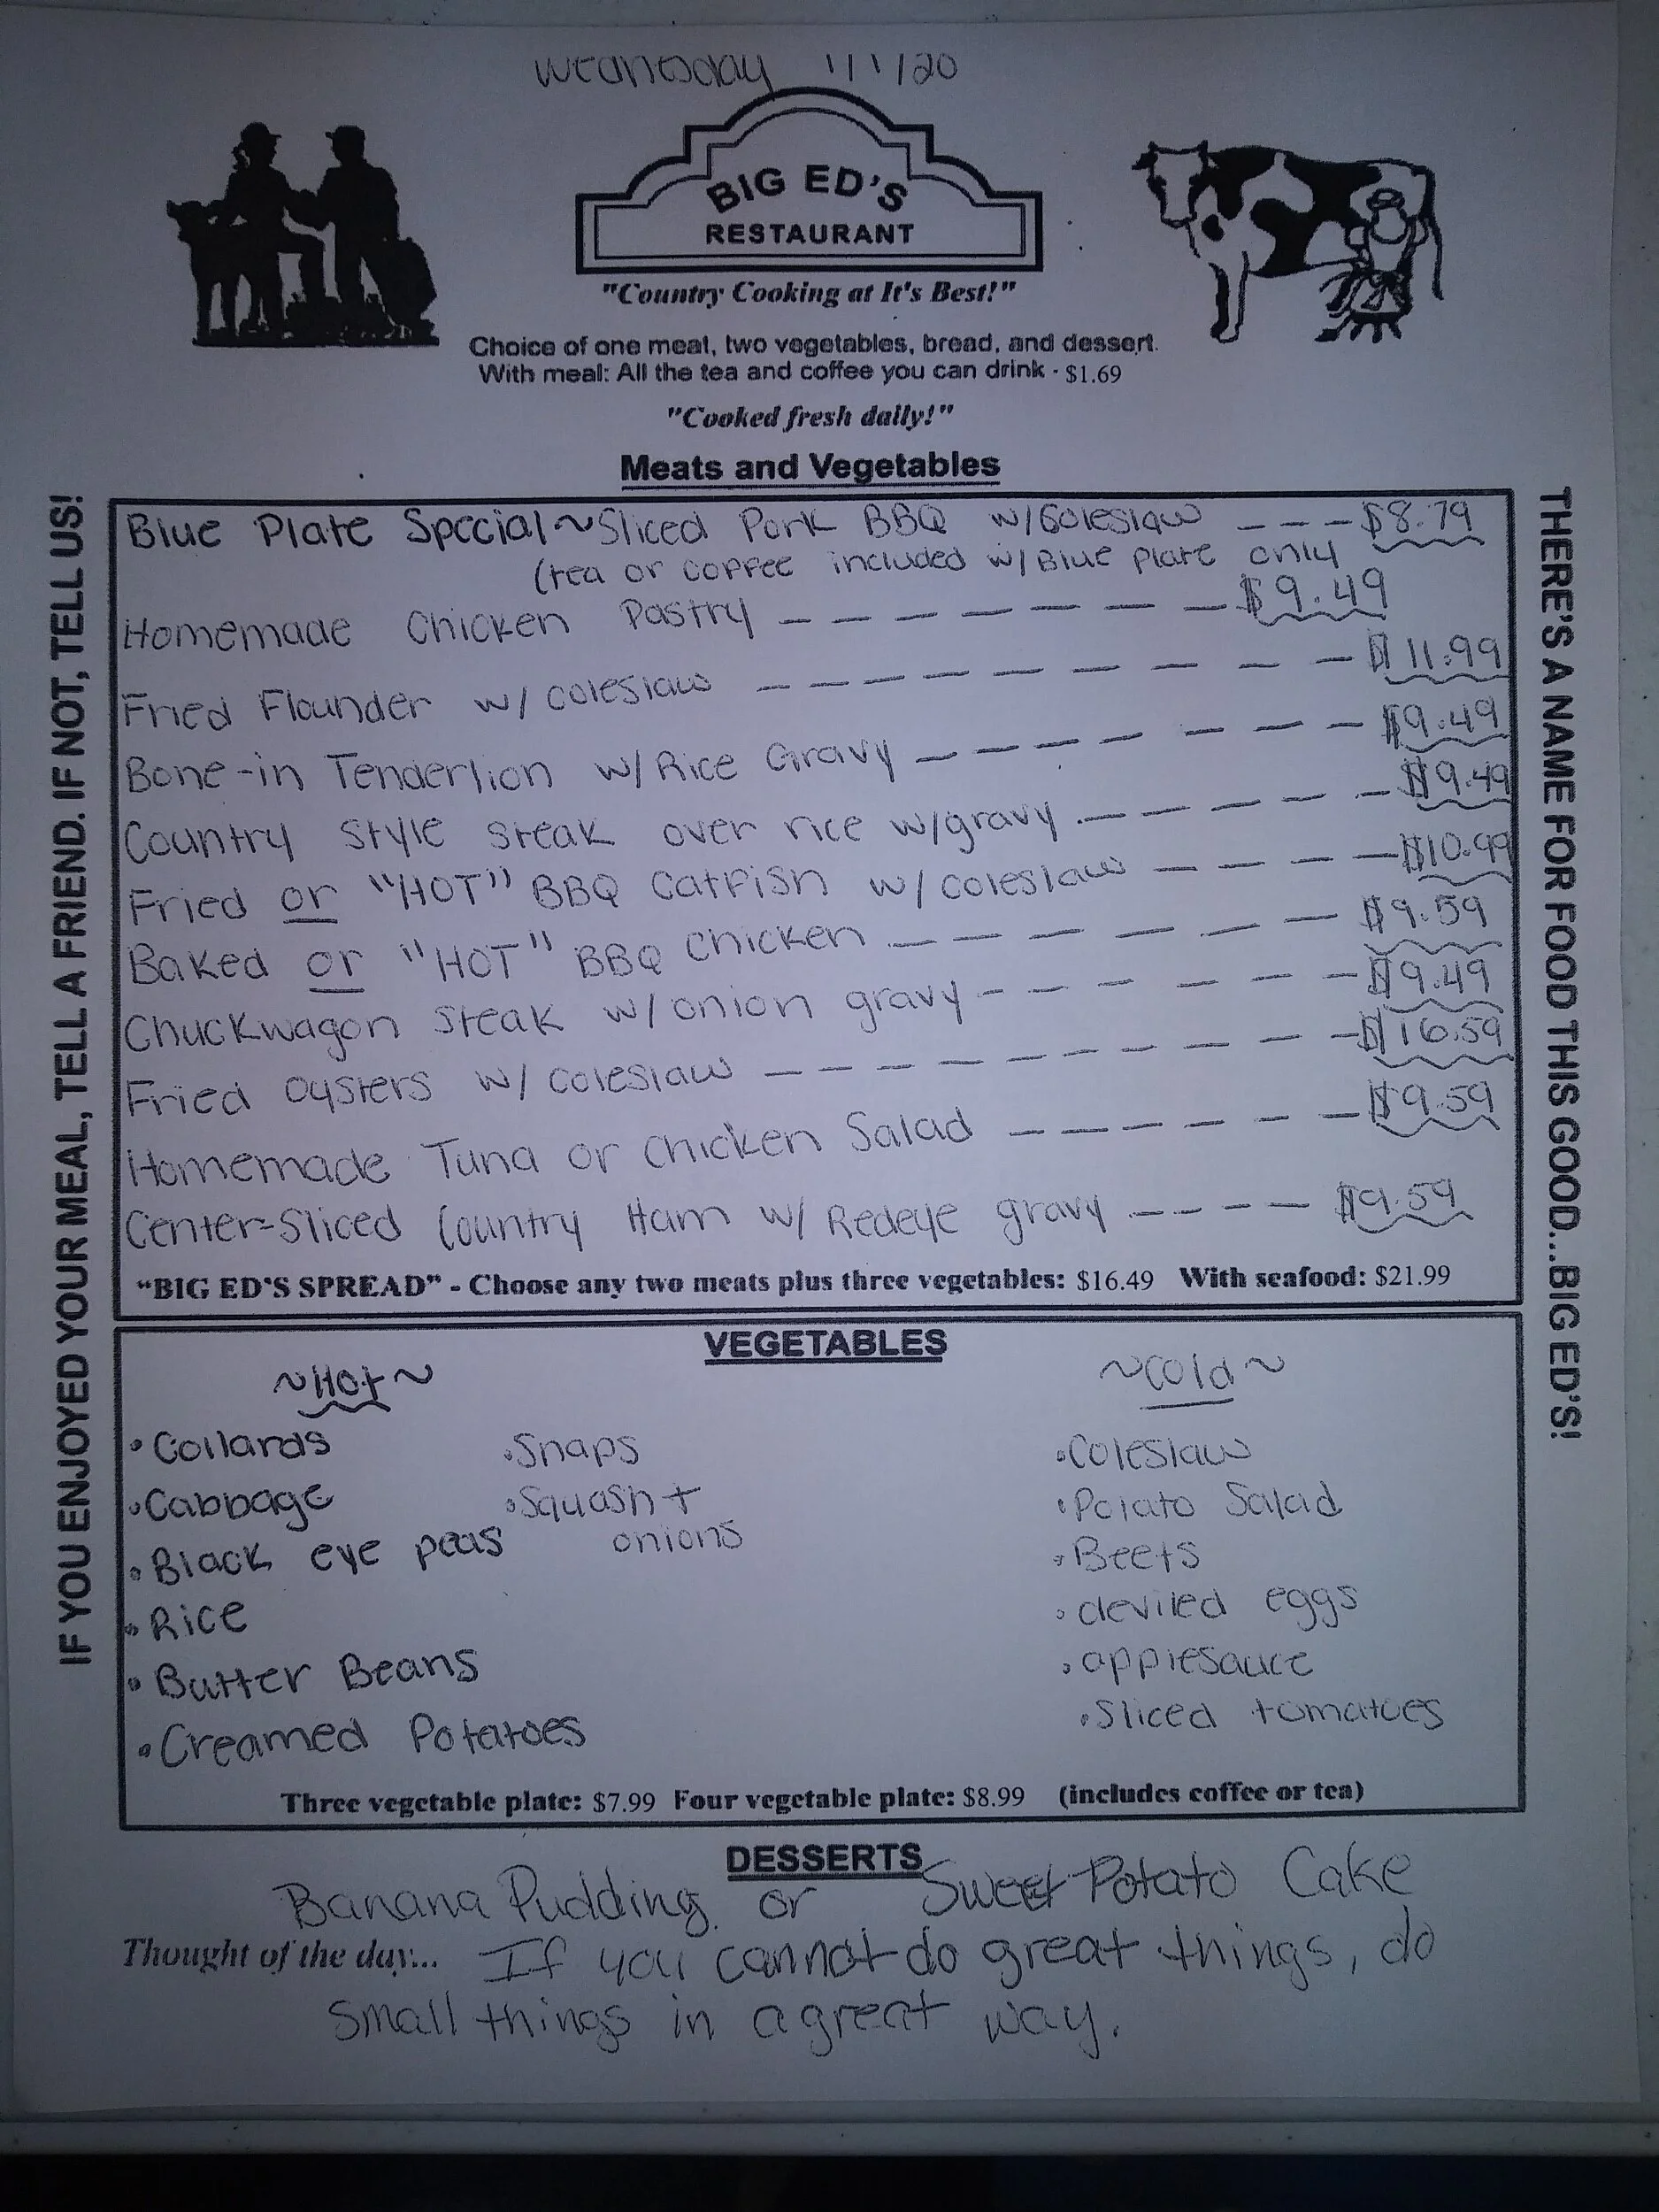 Wednesday 1/1/20
BIG ED'S
RESTAURANT
"Country Cooking at It's Best!"
Choice of one meat, two vegetables, bread, and dessert.
With meal: All the tea and coffee you can drink - $1.69
"Cooked fresh daily!"
Meats and Vegetables
IF YOU ENJOYED YOUR MEAL, TELL A FRIEND. IF NOT, TELL US!
THERE'S A NAME FOR FOOD THIS GOOD...BIG ED'S!
Blue Plate Special~Sliced Pork BBQ w/Coleslaw ---$8.79
(tea or coffee included w/Blue Plate only
Homemade Chicken Pastry -------$9.49
Fried Flounder w/ coleslaw ---------$11.99
Bone-in Tenderlion w/Rice Gravy -------$9.49
Country Style steak over rice w/gravy ------$9.49
Fried or "HOT" BBQ Catfish w/coleslaw ----$10.99
Baked or "HOT" BBQ Chicken ------$9.59
Chuckwagon steak w/onion gravy ------$9.49
Fried Oysters w/ coleslaw ---------$16.59
Homemade Tuna or Chicken Salad ------$9.59
Center-Sliced Country Ham w/ Redeye gravy ----$9.59
"BIG ED'S SPREAD" - Choose any two meats plus three vegetables: $16.49 With seafood: $21.99
VEGETABLES
~Hot~
• Collards
• Cabbage
• Black eye peas
• Rice
• Butter Beans
• Creamed Potatoes
• Snaps
• Squash +
onions
~Cold~
• Coleslaw
• Potato Salad
• Beets
• deviled eggs
• applesauce
• Sliced tomatoes
Three vegetable plate: $7.99 Four vegetable plate: $8.99 (includes coffee or tea)
DESSERTS
Banana Pudding or Sweet Potato Cake
Thought of the day... If you cannot do great things, do
small things in a great way.